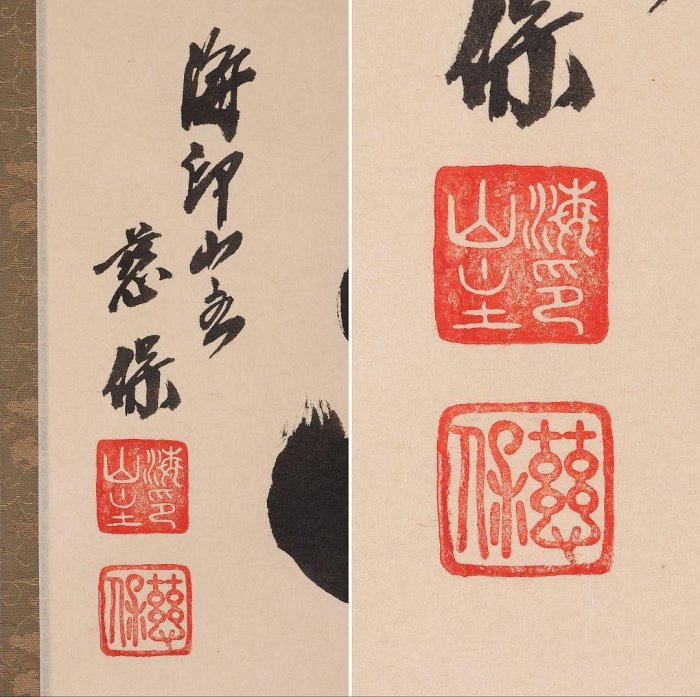 海印山主
慈保
海印
山主
慈保
保
海印
山主
慈保